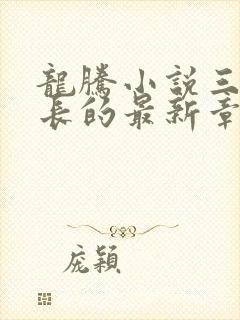 龍騰小說三
長的最新章
庞穎